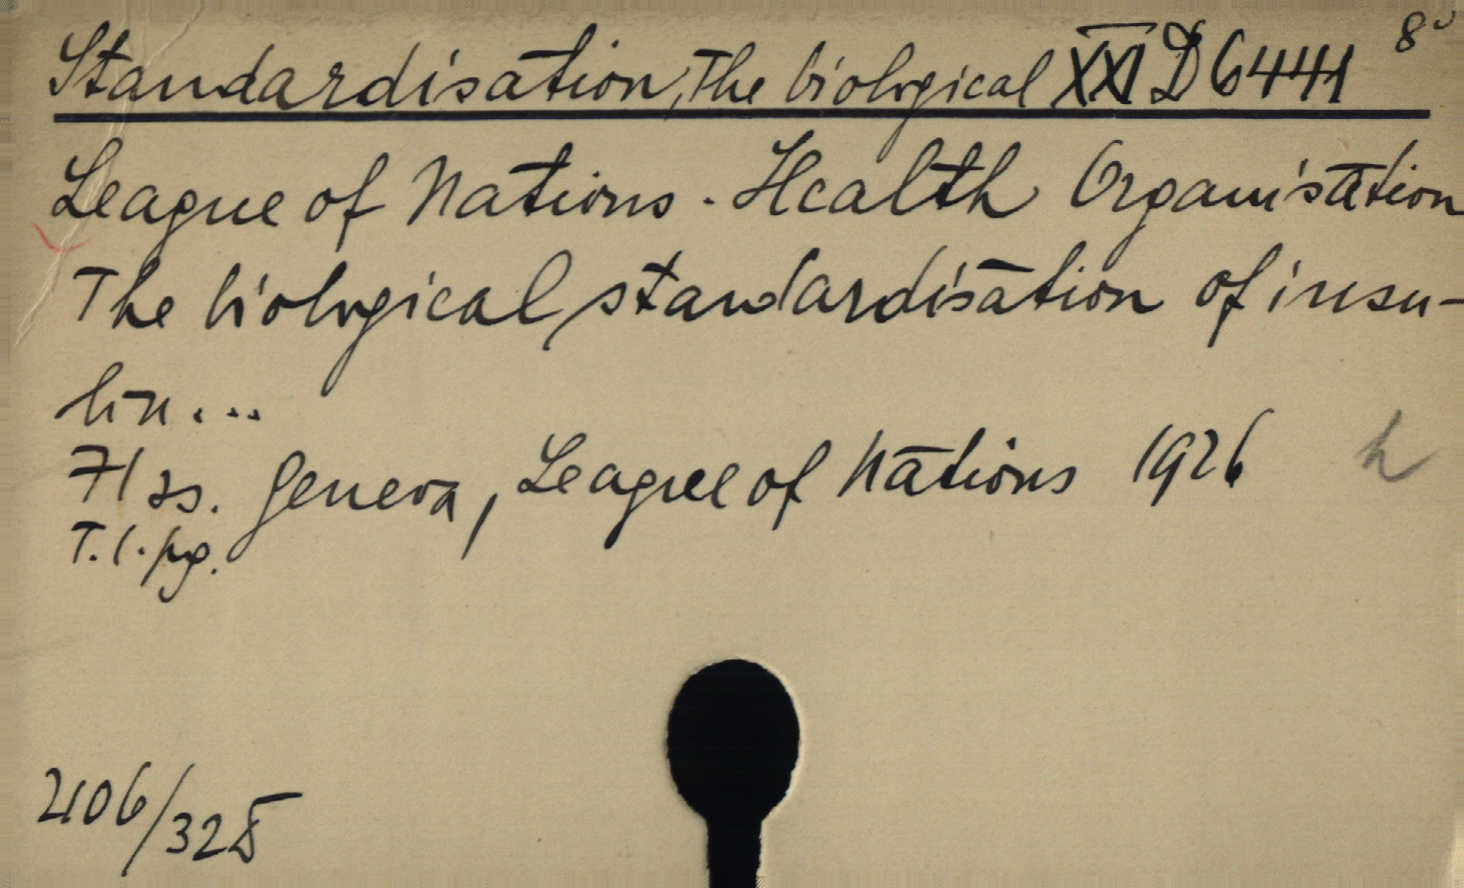 Standardisation, The biological XXI D 6441 8°
League of Nations. Health Organisation
The biological standardisation of insu-
lin...
71 ss. Geneva, League of Nations 1926 h
T. l. pg.
2106/328